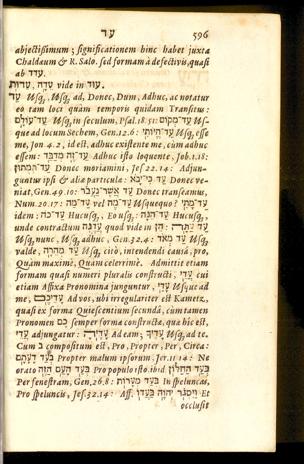 עד 596
abjectissimum; significationem hinc habet juxta
Chaldæum & R. Salo. sed formam à defectivis, quasi
ab עדד.
עדה, עדות vide in עוד.
עד Usq, Usq, ad, Donec, Dum, Adhuc, ac notatur
eo tam loci quàm temporis quidam Transitus:
עד־מקום Usq, in seculum, Psal. 18. 51: עד־עולם Us-
que ad locum Sechem, Gen. 12. 6: עד־היותי Usq, esse
me, Jon. 4. 2, id est, adhuc existente me, cùm adhuc
essem: עד־זה מדבר Adhuc isto loquente, Job. 1. 18:
עד־תמתון Donec moriamini, Jes. 22. 14: Adjun-
guntur ipsi & alia particula: עד כי־יבא Donec ve-
niat, Gen. 49. 10: עד אשר־נעבר Donec transeamus,
Num. 20. 17: עד־מתי vel עד־מה Usquequo?
idem: עד־כה Hucusq, Eousq: עד־הנה Hucusq,
unde contractum עדנה quod vide in הן:
Usq, nunc, Usq, adhuc, Gen. 32. 4: עד מאד Usq,
valde: עד מהרה Usq, citò, intendendi causâ, pro,
Quàm maximè, Quàm celerrimè. Admittit etiam
formam quasi numeri pluralis constructi, עדי cui
etiam Affixa Pronomina junguntur, עדי Usq, ad
me: עדיכם Ad vos, ubi irregulariter est Kametz,
quasi ex forma Quiescentium secundâ, cùm tamen
Pronomen כם semper forma constructa, quæ hîc est,
עדי adjungatur: עדיה Ad eam; עדיך Usq, ad te.
Cum ב compositum est, Pro, Propter, Per, Circa:
בעד רעתם Propter malum ipsorum Jer. 11. 14: Ne
orato בעד העם הזה Pro populo isto. ibid. בעד החלון
Per fenestram, Gen. 26. 8: בעד מערות In speluncas,
Pro speluncis, Jes. 32. 14: Aff. ויסגר יהוה בעדו Et
occlusit